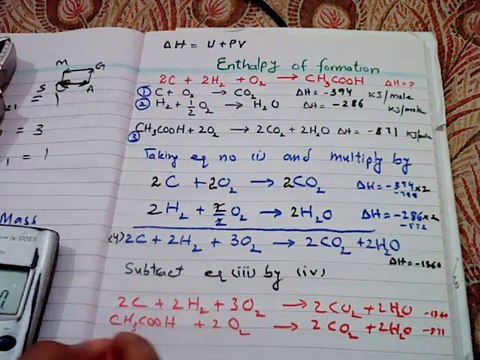 ΔH = U + PV
Enthalpy of formation
2C + 2H₂ + O₂ → CH₃COOH ΔH = ?
① C + O₂ → CO₂ ΔH = -394 KJ/mole
② H₂ + 1/2 O₂ → H₂O ΔH = -286 KJ/mole
③ CH₃COOH + 2O₂ → 2CO₂ + 2H₂O ΔH = -871 KJ/mole
Taking eq no (i) and multiply by
2C + 2O₂ → 2CO₂ ΔH = -394 x 2
-788
2H₂ + 2/2 O₂ → 2H₂O ΔH = -286 x 2
-572
(4) 2C + 2H₂ + 3O₂ → 2CO₂ + 2H₂O
ΔH = -1360
Subtract eq (iii) by (iv)
2C + 2H₂ + 3O₂ → 2CO₂ + 2H₂O -1360
CH₃COOH + 2O₂ → 2CO₂ + 2H₂O -871
M G
S A
= 3
1 = 1
Mass